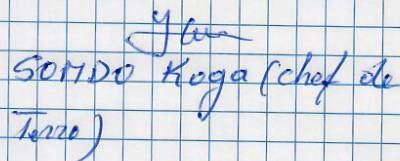 SOMDO Koga (chef de
Terre)